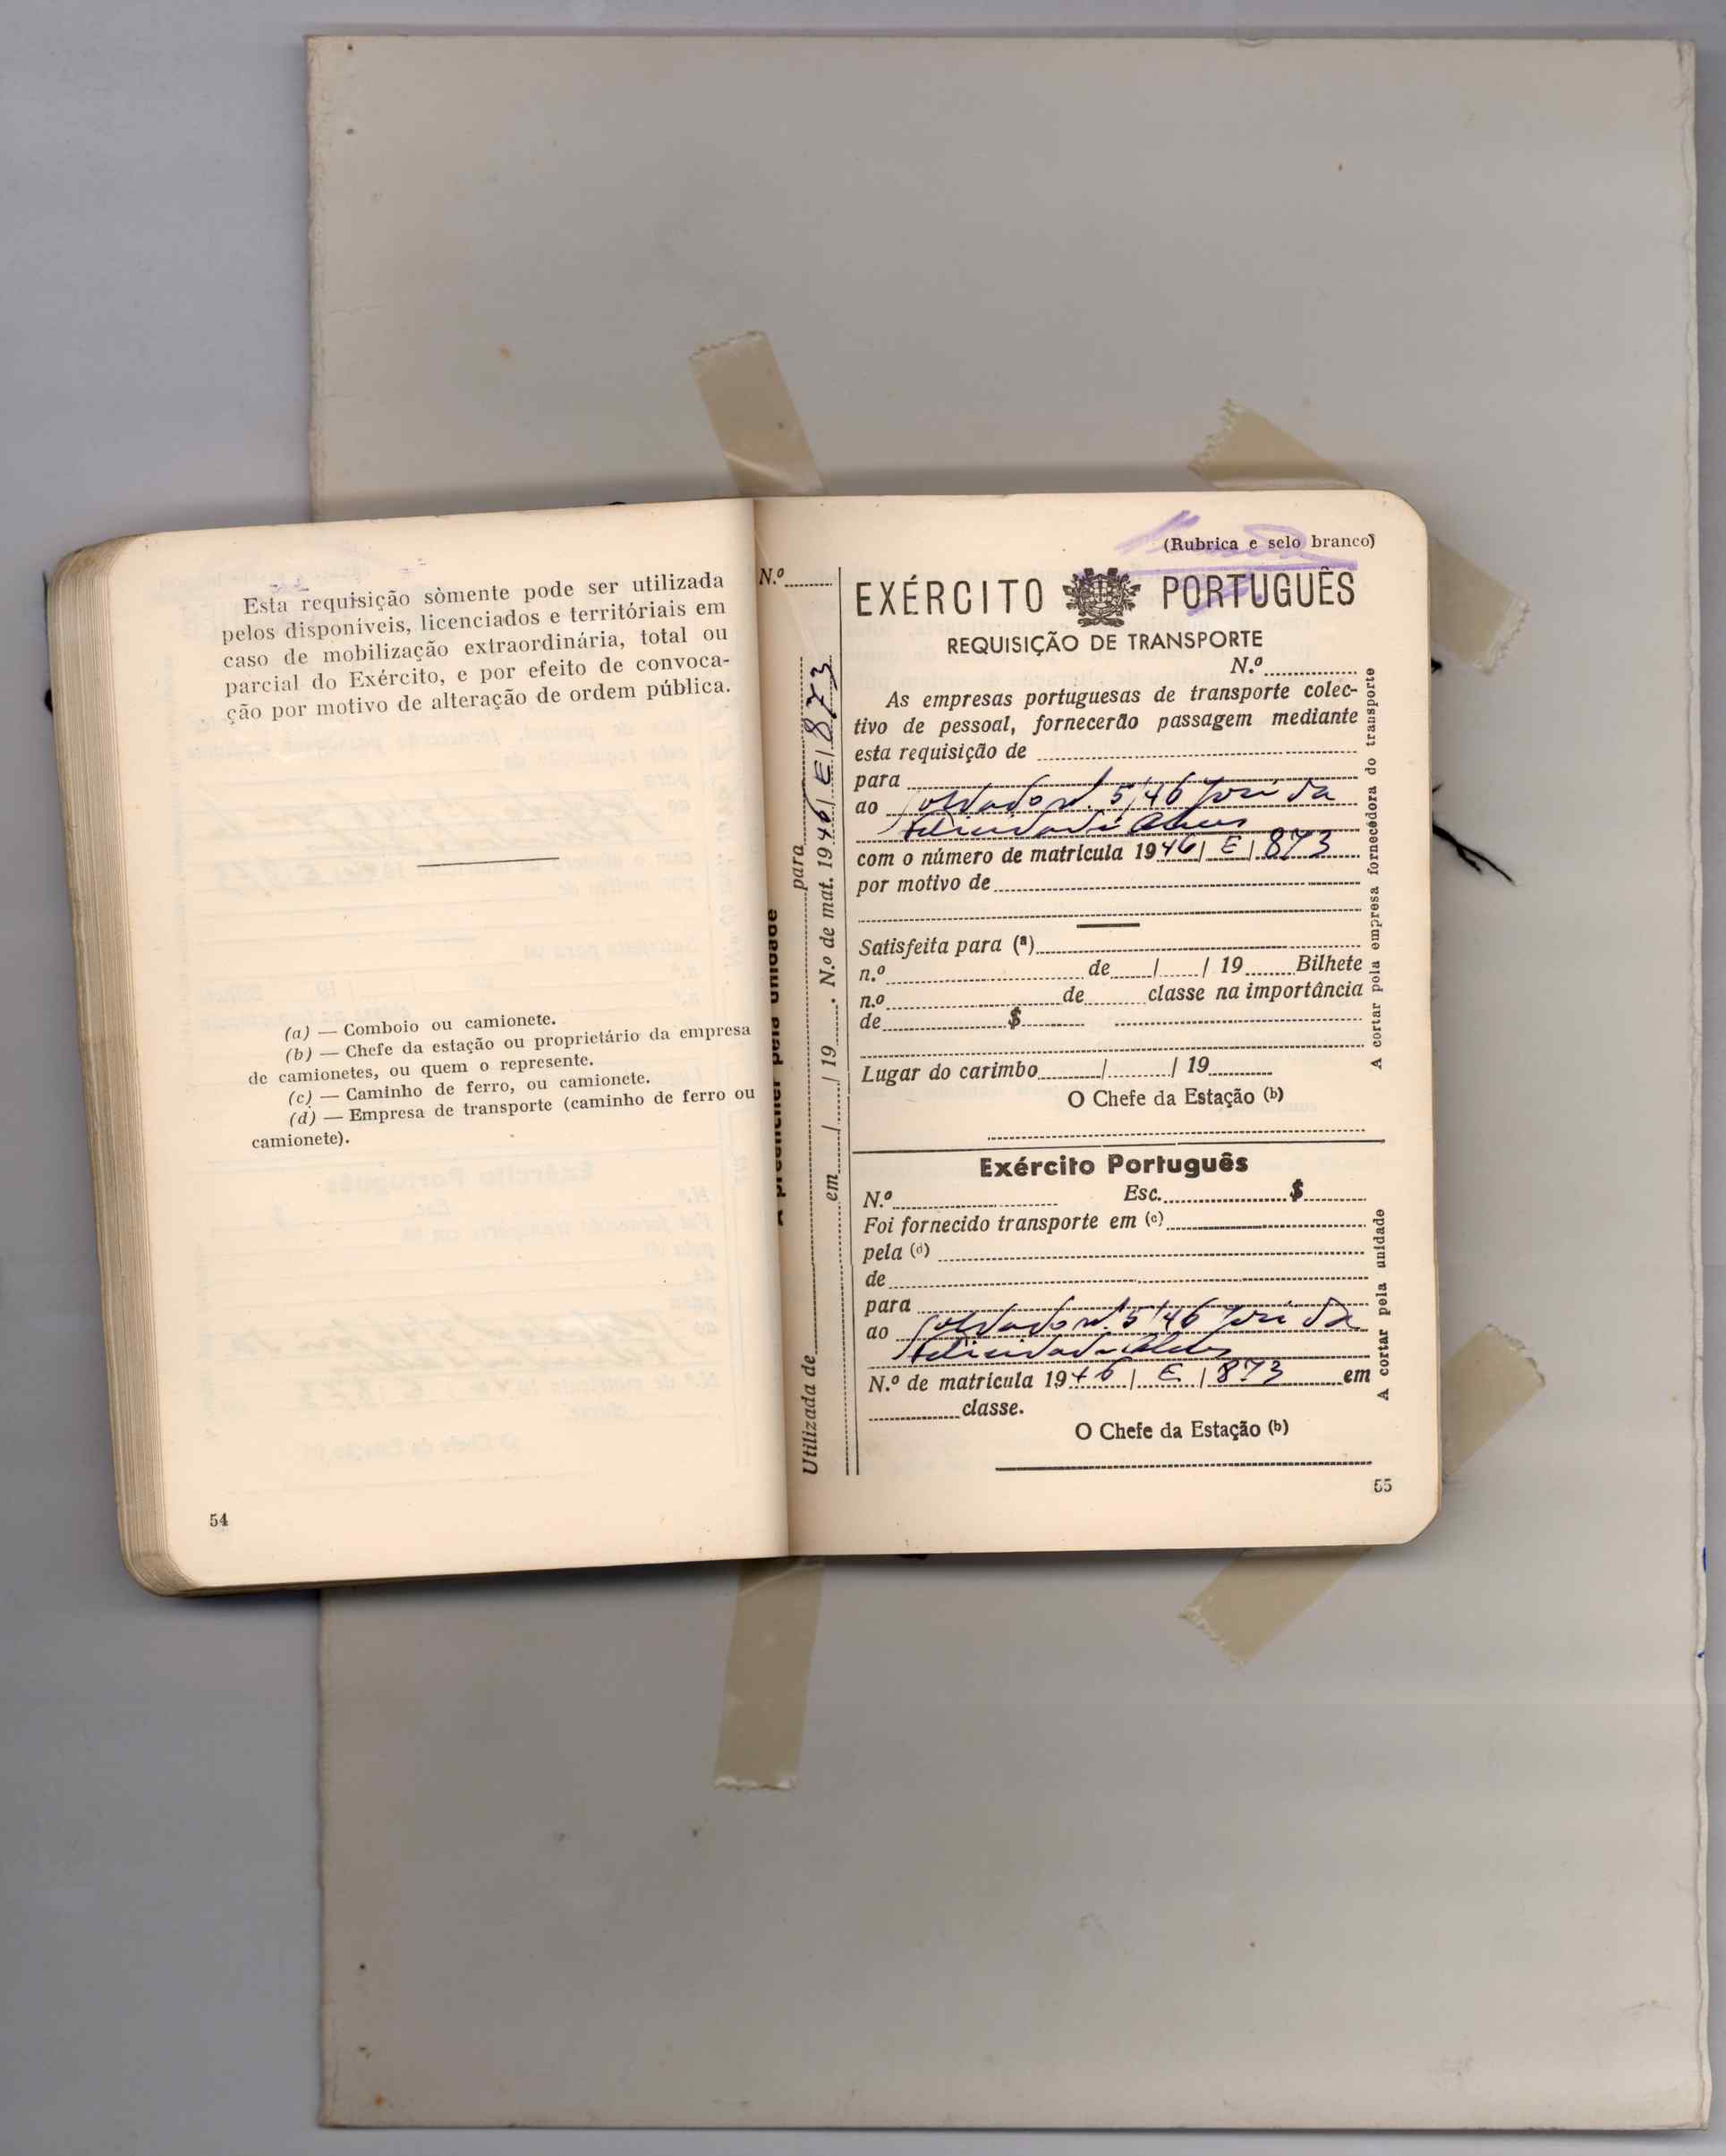 Esta requisição sòmente pode ser utilizada
pelos disponíveis, licenciados e territóriais em
caso de mobilização extraordinária, total ou
parcial do Exército, e por efeito de convoca-
ção por motivo de alteração de ordem pública.
(a) — Comboio ou camionete.
(b) — Chefe da estação ou proprietário da empresa
de camionetes, ou quem o represente.
(c) — Caminho de ferro, ou camionete.
(d) — Empresa de transporte (caminho de ferro ou
camionete).
54
N.º
A preencher pela unidade
Utilizada de para
em / / 19 . N.º de mat. 19 46 / E / 873
(Rubrica e selo branco)
EXÉRCITO PORTUGUÊS
REQUISIÇÃO DE TRANSPORTE
N.º
As empresas portuguesas de transporte colec-
tivo de pessoal, fornecerão passagem mediante
esta requisição de
para
ao soldado n.º 5/46 José da
Felicidade Alves
com o número de matrícula 19 46 / E / 873
por motivo de
Satisfeita para (a)
n.º de / / 19 Bilhete
n.º de classe na importância
de $
Lugar do carimbo / / 19
O Chefe da Estação (b)
A cortar pola empresa fornecedora do transporte
Exército Português
N.º Esc. $
Foi fornecido transporte em (c)
pela (d)
de
para
ao soldado n.º 5/46 José da
Felicidade Alves
N.º de matrícula 19 46 / E / 873 em
classe.
O Chefe da Estação (b)
A cortar pela unidade
55